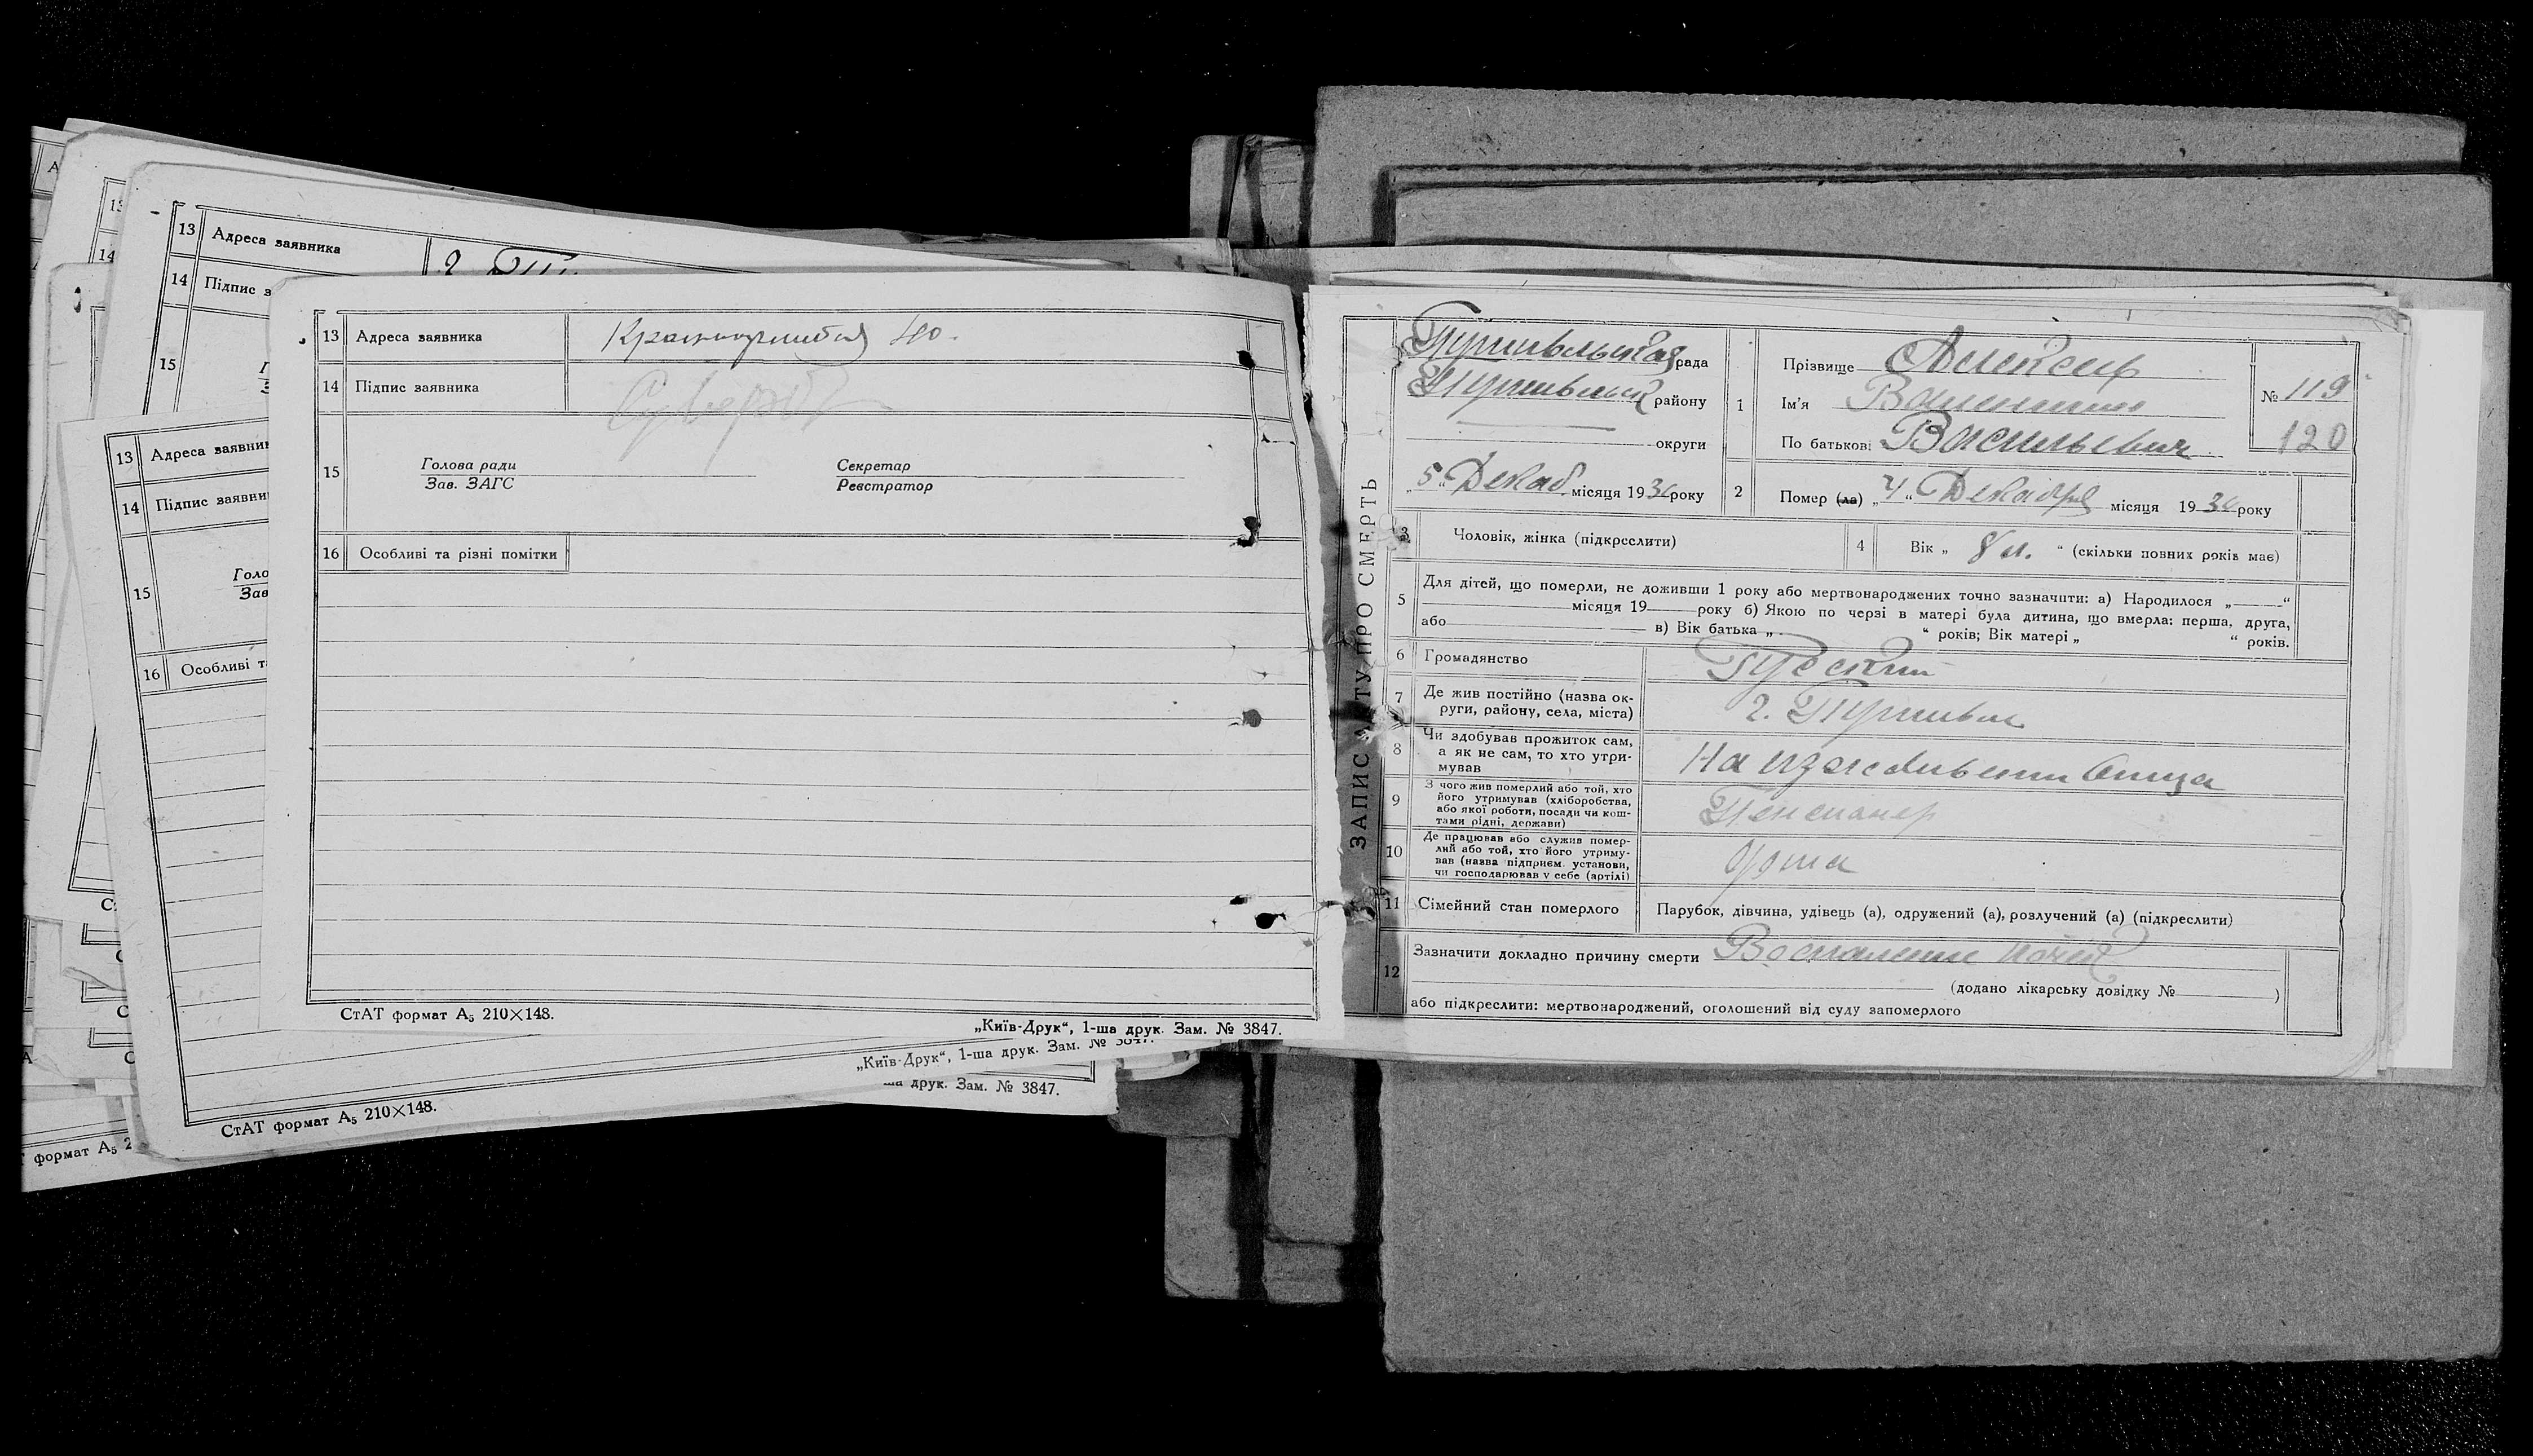 А
13
14
13 Адреса заявника
14 Підпис з
15
13 Адреса заявни
14 Підпис заявни
15 Голо
Зав
16 Особливі т
13 Адреса заявника 40.
14 Підпис заявника
15 Голова ради Секретар
Зав. ЗАГС Реєстратор
16 Особливі та різні помітки
СтАТ формат А₅ 210×148.
„Київ-Друк“, 1-ша друк. Зам. № 3847.
„Київ-Друк“, 1-ша друк. Зам. № 3847.
ша друк. Зам. № 3847.
СтАТ формат А₅ 210×148.
формат А₅ 2
ЗАПИС АКТУ ПРО СМЕРТЬ
рада
району
округи
„5“ Декаб. місяця 1934 року
1 Прізвище Алексеев
Ім'я
По батькові Васильевич
№ 119
120
2 Помер (ла) „4“ Декабря місяця 1934 року
3 Чоловік, жінка (підкреслити)
4 Вік „ 8 м. “ (скільки повних років має)
5 Для дітей, що померли, не доживши 1 року або мертвонароджених точно зазначити: а) Народилося „ “
місяця 19 року б) Якою по черзі в матері була дитина, що вмерла: перша, друга,
або в) Вік батька „ “ років; Вік матері „ “ років.
6 Громадянство Русский
7 Де жив постійно (назва ок-
руги, району, села, міста) г. Путивль
8 Чи здобував прожиток сам,
а як не сам, то хто утри-
мував На иждивении Отца
9 З чого жив померлий або той, хто
його утримував (хліборобства,
або якої роботи, посади чи кош-
тами рідні, держави) Пенсионер
10 Де працював або служив помер-
лий або той, хто його утриму-
вав (назва підприєм. установи,
чи господарював у себе (артілі)
11 Сімейний стан померлого Парубок, дівчина, удівець (а), одружений (а), розлучений (а) (підкреслити)
12 Зазначити докладно причину смерти Воспаление почек
(додано лікарську довідку № )
або підкреслити: мертвонароджений, оголошений від суду запомерлого